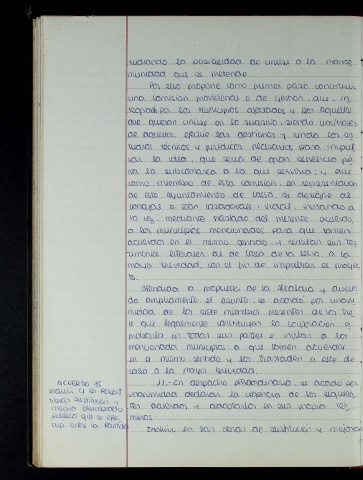 tudiando la posibilidad de unirse a la manco
munidad que se pretende.
Por ello propone como primer paso constituir
una comisión provisional o de gestión, que, in
tegrada por los municipios afectados y por aquellos
que quieran unirse en lo sucesivo, siendo limítrofes
de aquellos, efectúe las gestiones y rinda los es
tudios técnicos y jurídicos necesarios para impul
sar la idea, que sería de gran beneficio pa
ra la subcomarca a la que serviría; y que
como miembro de esta comisión, en representación
de este Ayuntamiento de Cassá, se designe al
concejal D. Joan Vidal, invitando a
la vez, mediante traslado del presente acuerdo,
a los municipios mencionados para que tomen
acuerdos en el mismo sentido y remitan sus tes
timonios literales al de Cassá de la Selva, a la
mayor brevedad, con el fin de impulsar el proyec
to.
Atendida la propuesta de la Alcaldía y discuti
do ampliamente el asunto, se acordó por unani
midad de los siete miembros presentes, de los trece
que legalmente constituyen la corporación,
en todas sus partes e invitar a los
mencionados municipios a que tomen acuerdos
en el mismo sentido y los trasladen a este de
Cassá a la mayor brevedad.
11.- En despacho extraordinario, se acordó por
unanimidad declarar la urgencia de los siguien
tes acuerdos y adoptarlos en sus propios tér
minos:
Incluir en las obras de sustitución y mejora
Acuerdo 15
obras sustitución y
mejora alumbrado
público que se efec
túa entre la Rambla